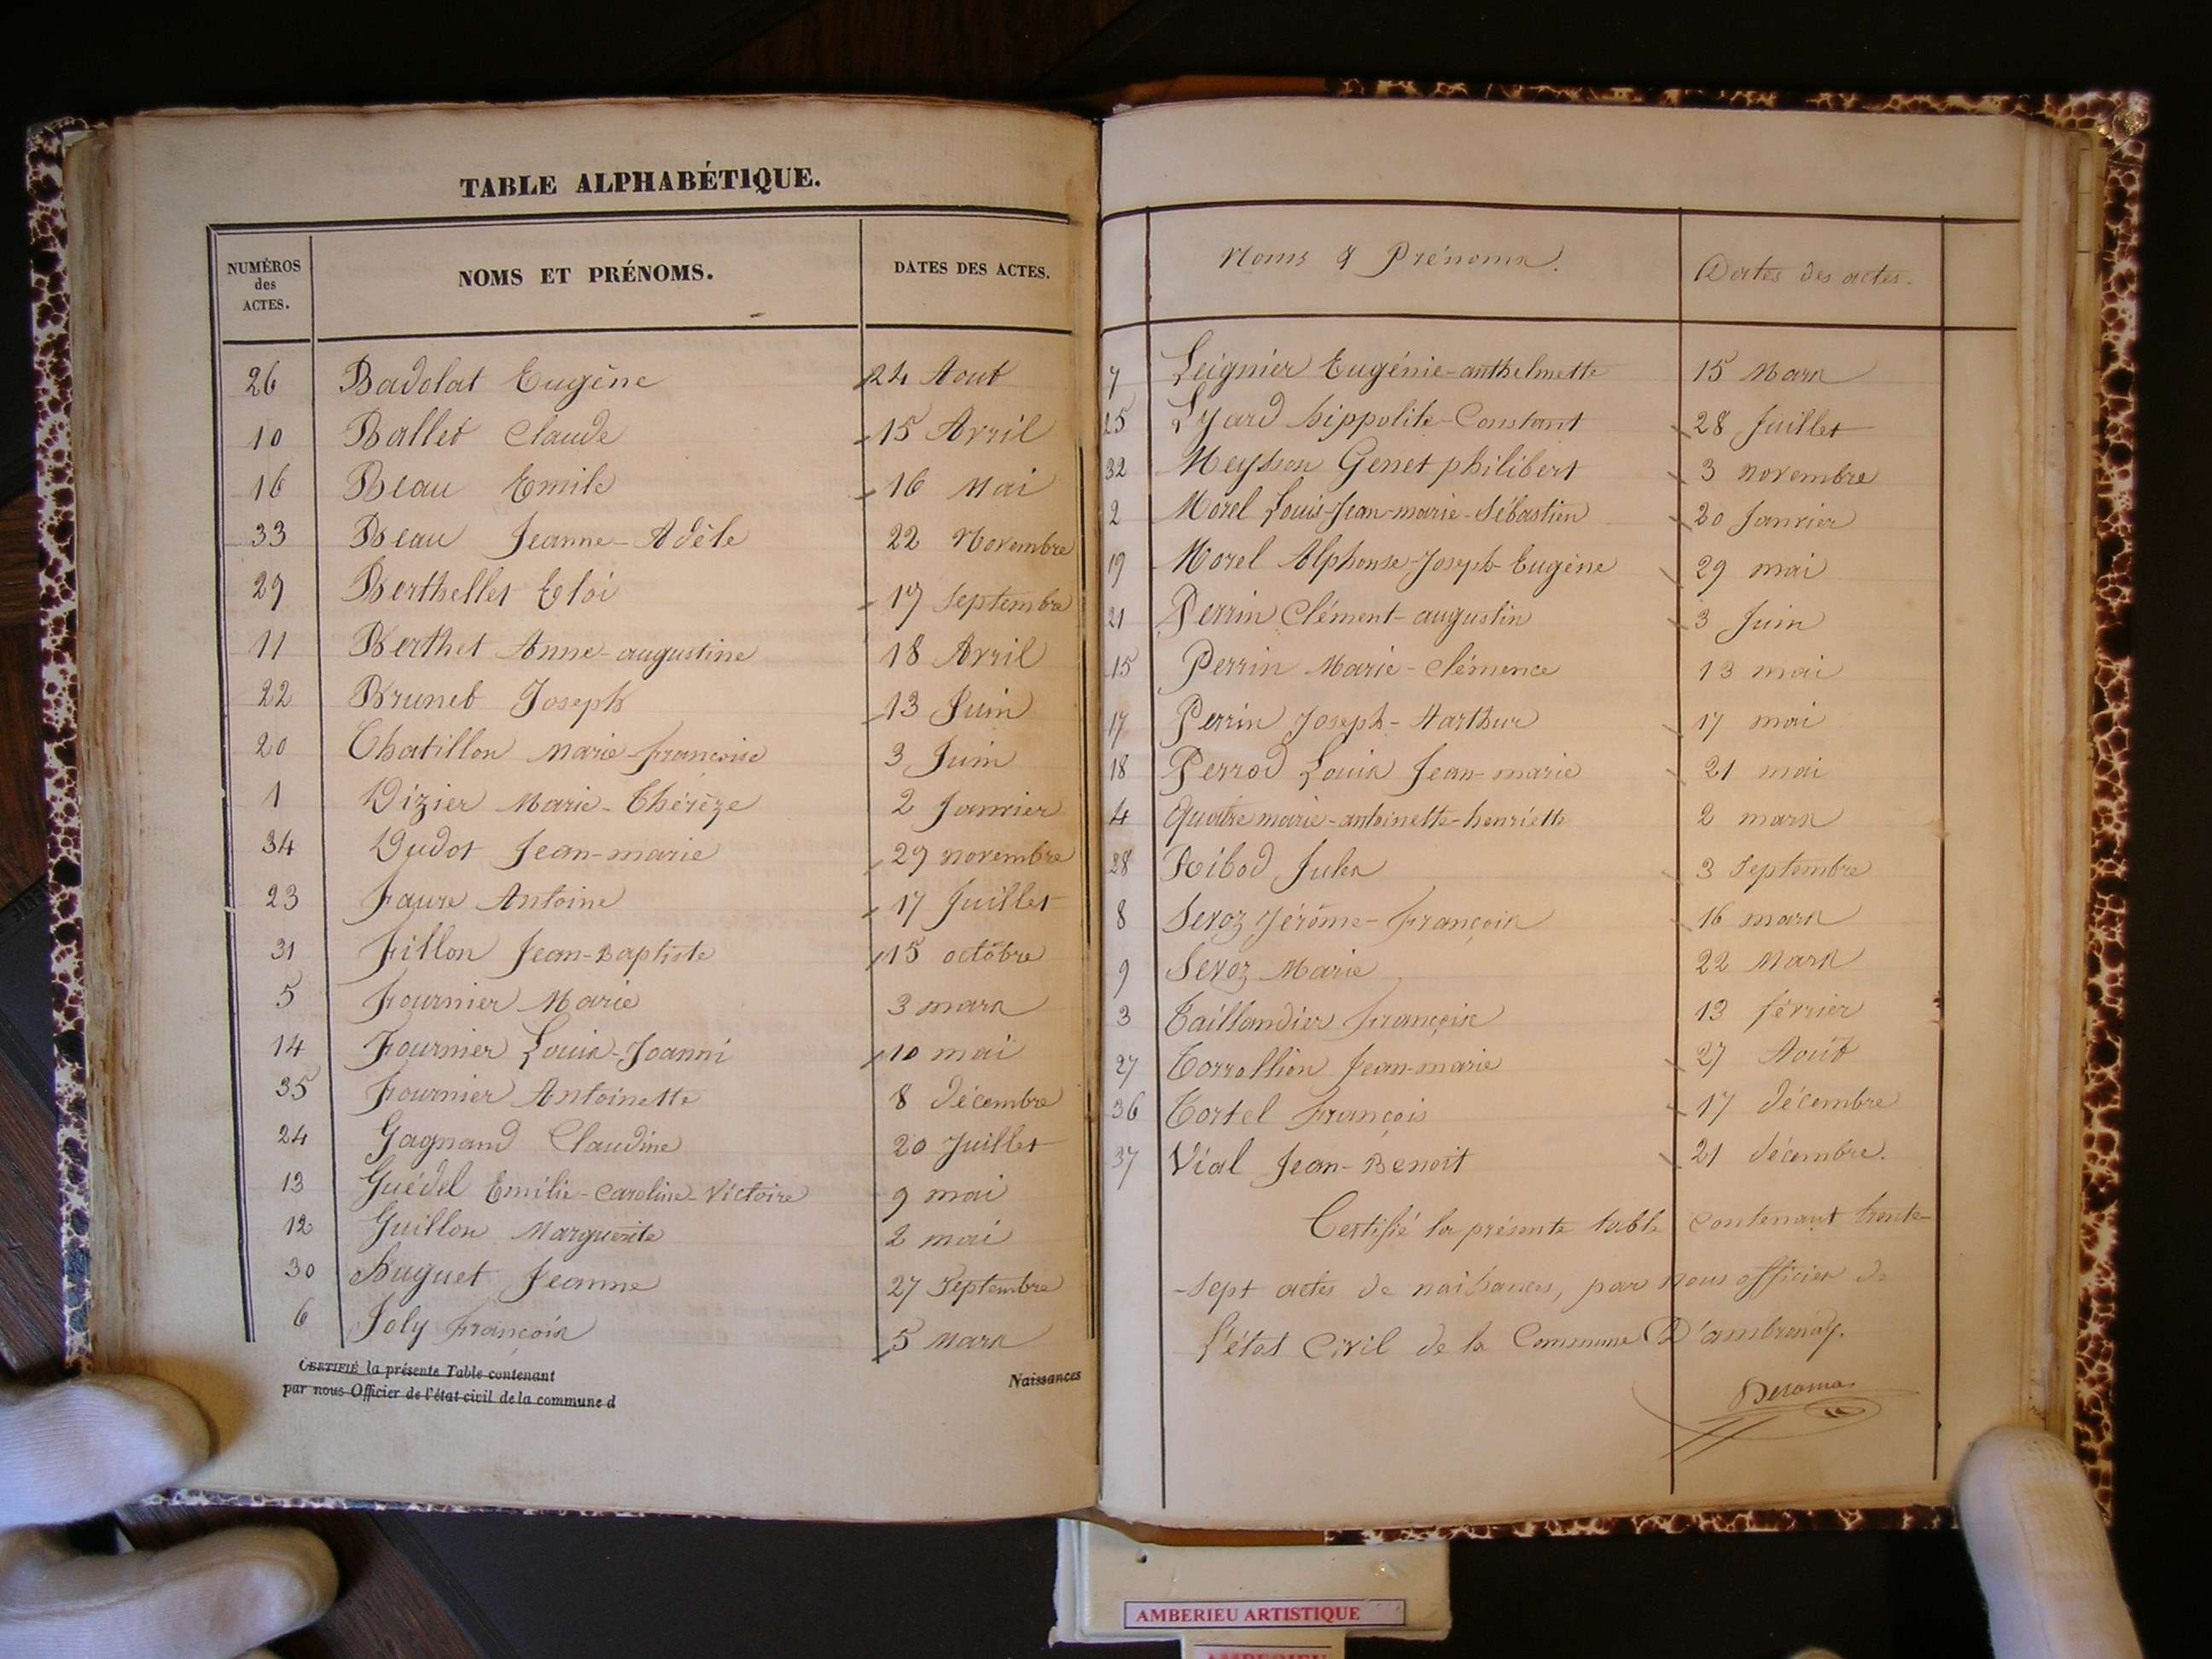 TABLE ALPHABÉTIQUE.
NUMÉROS des ACTES. NOMS ET PRÉNOMS. DATES DES ACTES.
26 Badolat Eugène 24 Aout
10 Ballet Claude 15 Avril
16 Beau Emile 16 Mai
33 Beau Jeanne-Adèle 22 Novembre
29 Berthellet Eloi 17 Septembre
11 Berthet Anne-augustine 18 Avril
22 Brunet Joseph 13 Juin
20 Chatillon Marie-françoise 3 Juin
1 Dizier Marie-Thérèze 2 Janvier
34 Dudot Jean-marie 29 novembre
23 Faure Antoine 17 Juillet
31 Fillon Jean-Baptiste 15 octobre
5 Fournier Marie 3 mars
14 Fournier Louis-Joanni 10 mai
35 Fournier Antoinette 8 décembre
24 Gagnand Claudine 20 Juillet
13 Guédel Emilie-Caroline-Victoire 9 mai
12 Guillon Marguerite 2 mai
30 Huguet Jeanne 27 Septembre
6 Joly François 5 Mars
CERTIFIÉ la présente Table contenant Naissances
par nous Officier de l'état civil de la commune d
Noms & Prénoms. Dates des actes.
7 Leignier Eugénie-anthelmette 15 Mars
25 Lyard hippolite-Constant 28 Juillet
32 Meysson Genet philibert 3 novembre
2 Morel Louis-Jean-marie-Sébastien 20 Janvier
19 Morel Alphonse-Joseph-Eugène 29 mai
21 Perrin Clément-augustin 3 Juin
15 Perrin Marie-Clémence 13 mai
17 Perrin Joseph-Aarthur 17 mai
18 Perrod Louis Jean-marie 21 mai
4 Quatre marie-antoinette-henriette 2 mars
28 Ribod Jules 3 Septembre
8 Sevoz Jérôme-François 16 mars
9 Sevoz Marie 22 Mars
3 Taillandier Françoise 13 février
27 Torrollion Jean-marie 27 Août
36 Tortel François 17 décembre
37 Vial Jean-Benoit 21 décembre.
Certifié la présente table contenant trente-
-sept actes de naissances, par nous officier de
l'état Civil de la Commune D'ambronay.
AMBERIEU ARTISTIQUE
AMBERIEU